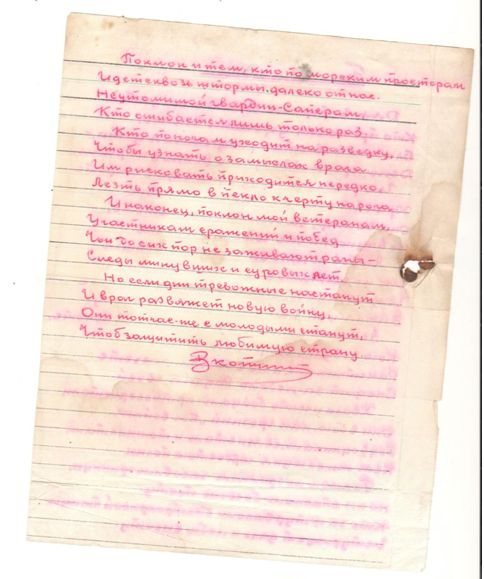 Поклон и тем, кто по морским просторам
Идет сквозь штормы далеко от нас.
Неутомимой гвардии-Саперам,
Кто ошибается лишь только раз.
Кто по ночам уходит на разведку,
Чтобы узнать о замыслах врага
Им рисковать приходится нередко,
Лезть прямо в пекло к черту на рога,
И наконец, поклон мой ветеранам,
Участникам сражений и побед
Чьи до сих пор не заживают раны-
Следы минувших и суровых лет
Но если дни тревожные настанут
И враг развяжет новую войну,
Они тотчас-же с молодыми станут,
Чтоб защитить любимую страну.